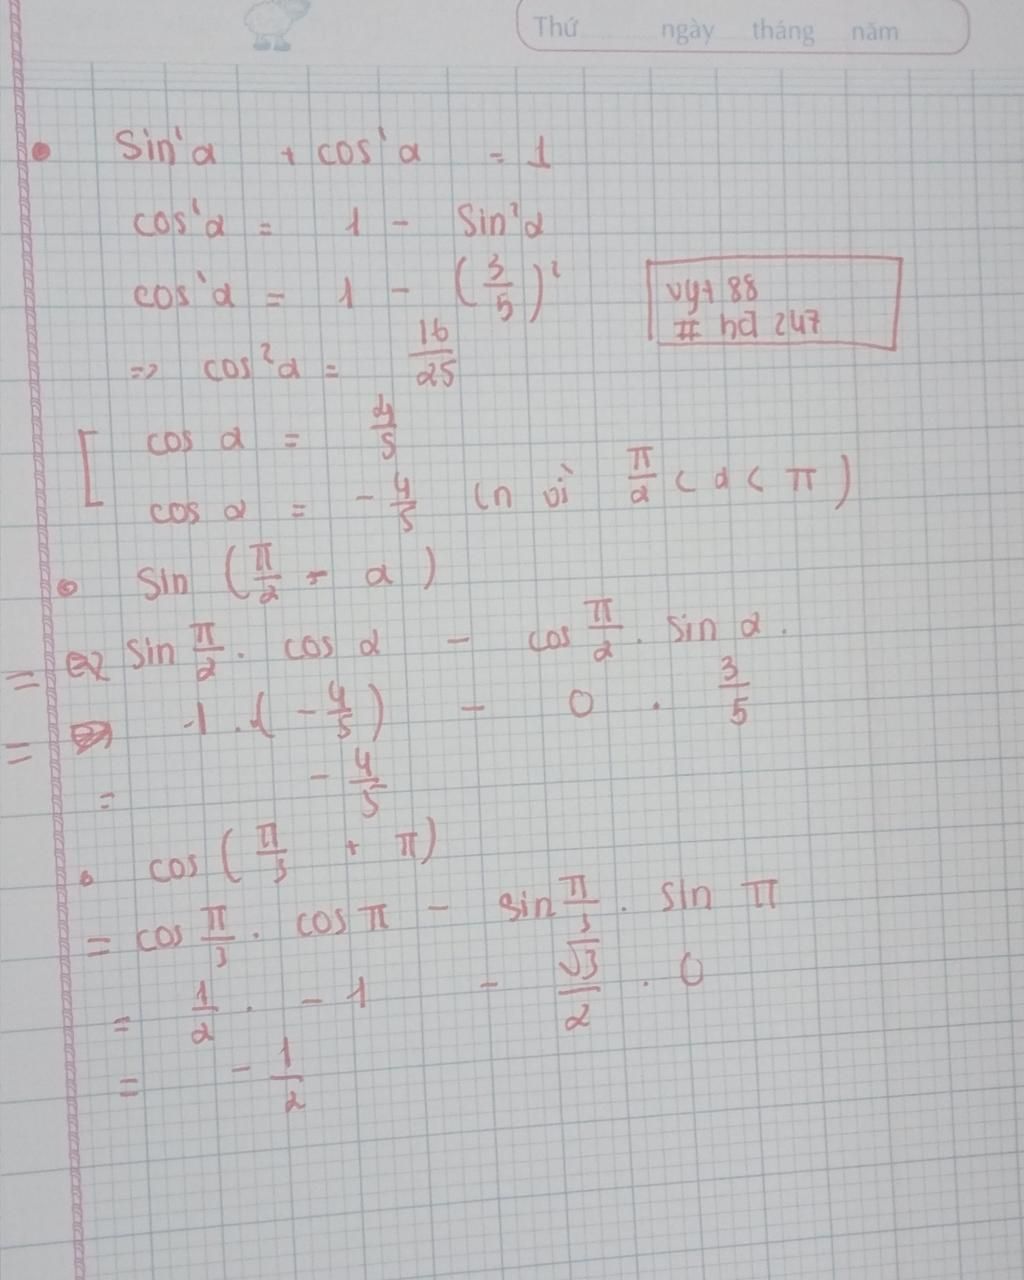 Thứ ngày tháng năm
sin²α + cos²α = 1
cos²α = 1 - sin²α
cos²α = 1 - (3/5)²
vyt 88
# hđ 247
=> cos²α = 16/25
[ cos α = 4/5
cos α = - 4/5 (n vì π/2 < α < π)
sin (π/2 - α)
= sin π/2 . cos α - cos π/2 . sin α .
= 1 . (- 4/5) - 0 . 3/5
= - 4/5
cos (π/3 + π)
= cos π/3 . cos π - sin π/3 . sin π
= 1/2 . - 1 - √3/2 . 0
= - 1/2